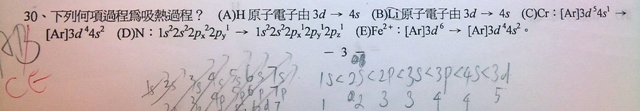 30、下列何項過程爲吸熱過程？ (A)H 原子電子由 3d → 4s (B)Li原子電子由 3d → 4s (C)Cr：[Ar]3d⁵4s¹ →
[Ar]3d⁴4s² (D)N：1s²2s²2pₓ²2pᵧ¹ → 1s²2s²2pₓ¹2pᵧ¹2p_z¹ (E)Fe²⁺：[Ar]3d⁶ → [Ar]3d⁴4s²。
CE
- 3 -
1s<2s<2p<3s<3p<4s<3d
1 2 3 3 4 4 5